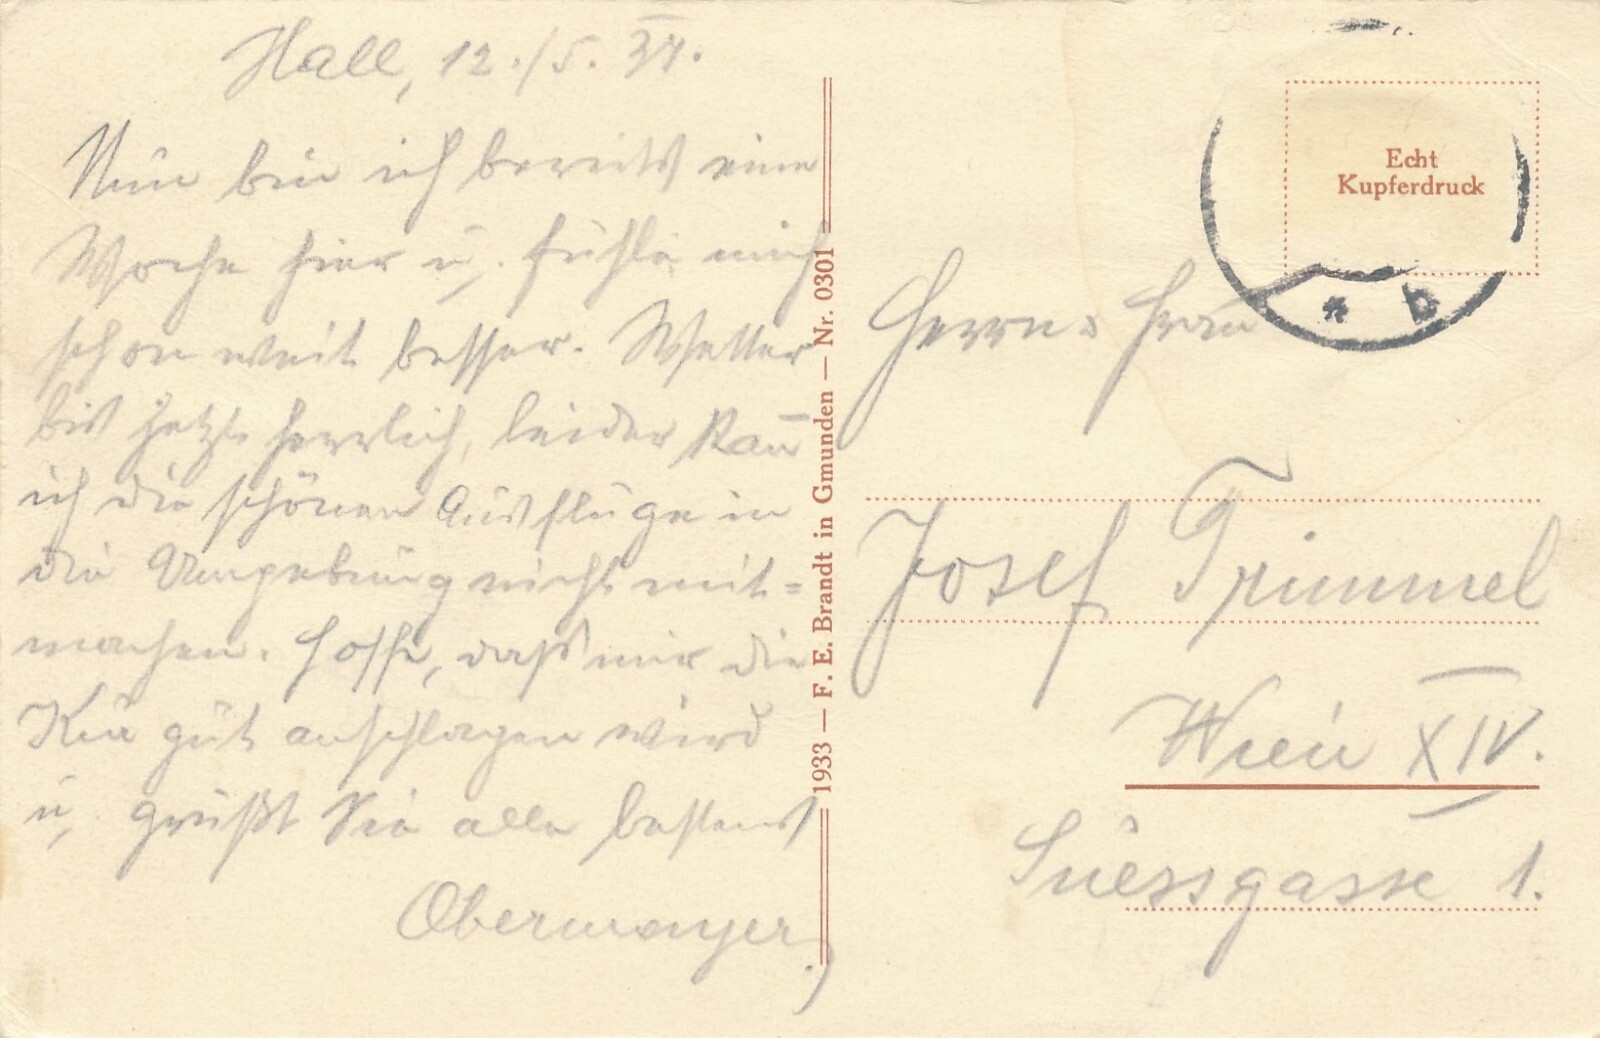 Hall, 12./5. 34.
Nun bin ich bereits eine
Woche hier u. fühle mich
schon weit besser. Wetter
bis jetzt herrlich, leider kan̄
ich die schönen Ausflüge in
die Umgebung nicht mit=
machen. Hoffe, dass mir die
Kur gut anschlagen wird
u. grüßt Sie alle bestens
Obermayer
1933 — F. E. Brandt in Gmunden — Nr. 0301
Echt
Kupferdruck
* b
Herrn u Frau
Josef Trimmel
Wien XIV.
Suessgasse 1.